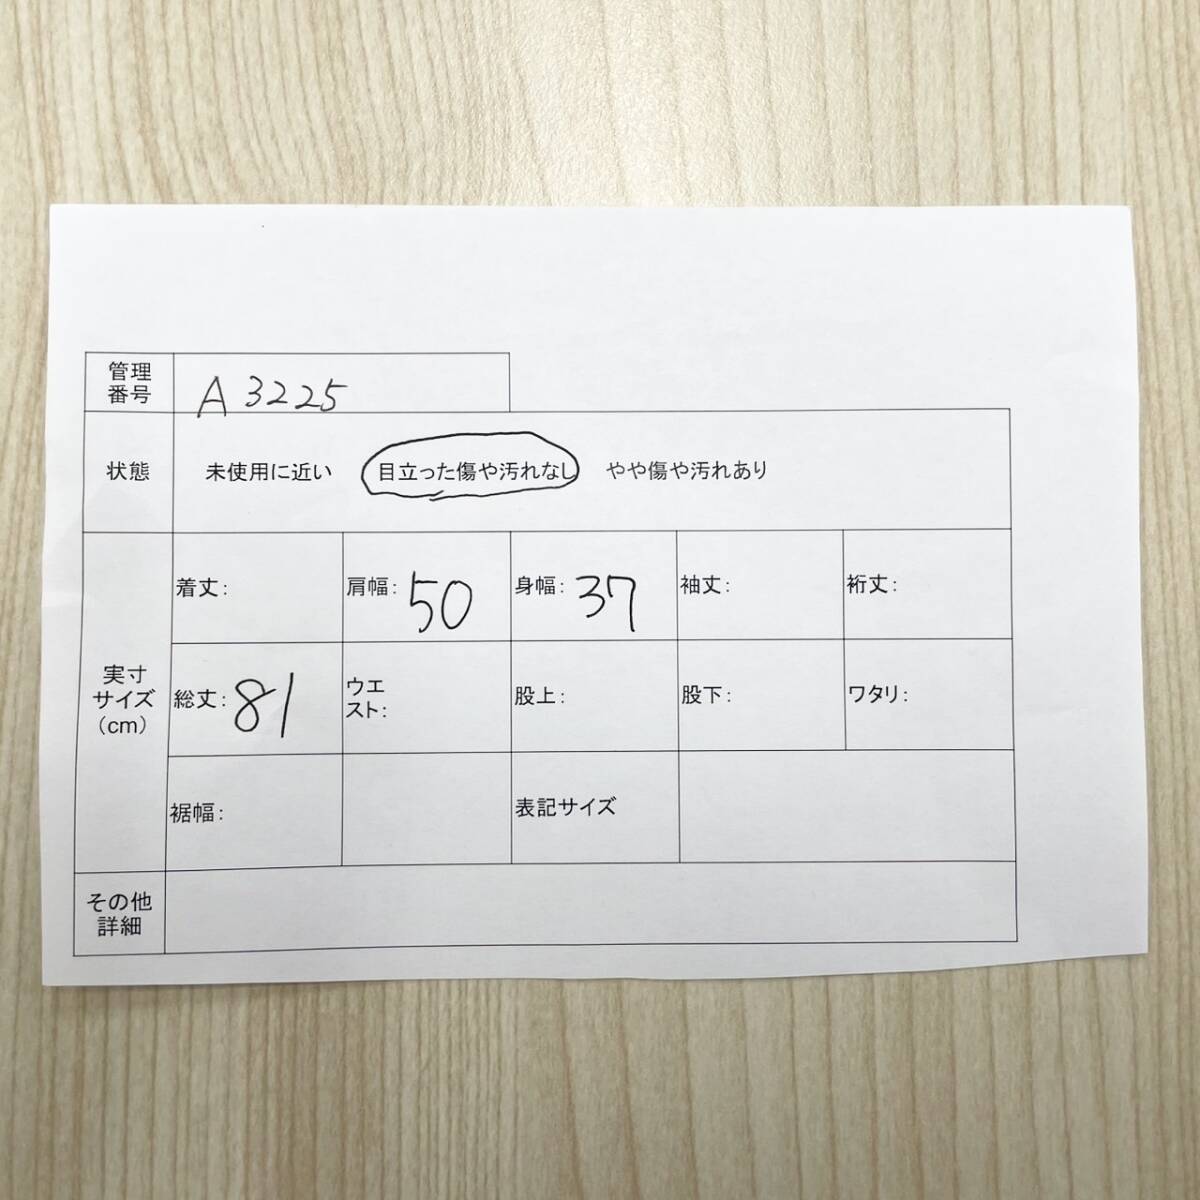 管理
番号
A 3225
状態
未使用に近い 目立った傷や汚れなし やや傷や汚れあり
実寸
サイズ
(cm)
着丈: 肩幅: 50 身幅: 37 袖丈: 裄丈:
総丈: 81 ウエ
スト: 股上: 股下: ワタリ:
裾幅: 表記サイズ
その他
詳細